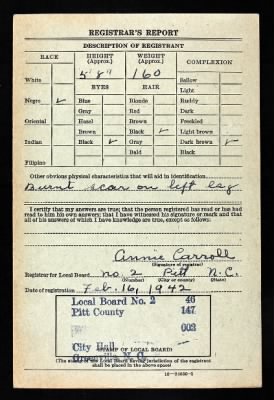 REGISTRAR'S REPORT
DESCRIPTION OF REGISTRANT
RACE HEIGHT (Approx.) WEIGHT (Approx.) COMPLEXION
5' 8" 160
White Sallow
EYES HAIR Light
Negro ✓ Blue Blonde Ruddy
Gray Red Dark
Oriental Hazel Brown Freckled
Brown Black ✓ Light brown
Indian Black ✓ Gray Dark brown ✓
Filipino Bald Black
Other obvious physical characteristics that will aid in identification
Burnt scar on left leg
I certify that my answers are true; that the person registered has read or has had read to him his own answers; that I have witnessed his signature or mark and that all of his answers of which I have knowledge are true, except as follows:
Annie Carroll
(Signature of registrar)
Registrar for Local Board No. 2 Pitt N.C.
(Number) (City or county) (State)
Date of registration Feb. 16, 1942
Local Board No. 2 46
Pitt County 147
002
City Hall
(STAMP OF LOCAL BOARD)
N. C.
(The stamp of the Local Board having jurisdiction of the registrant shall be placed in the above space)